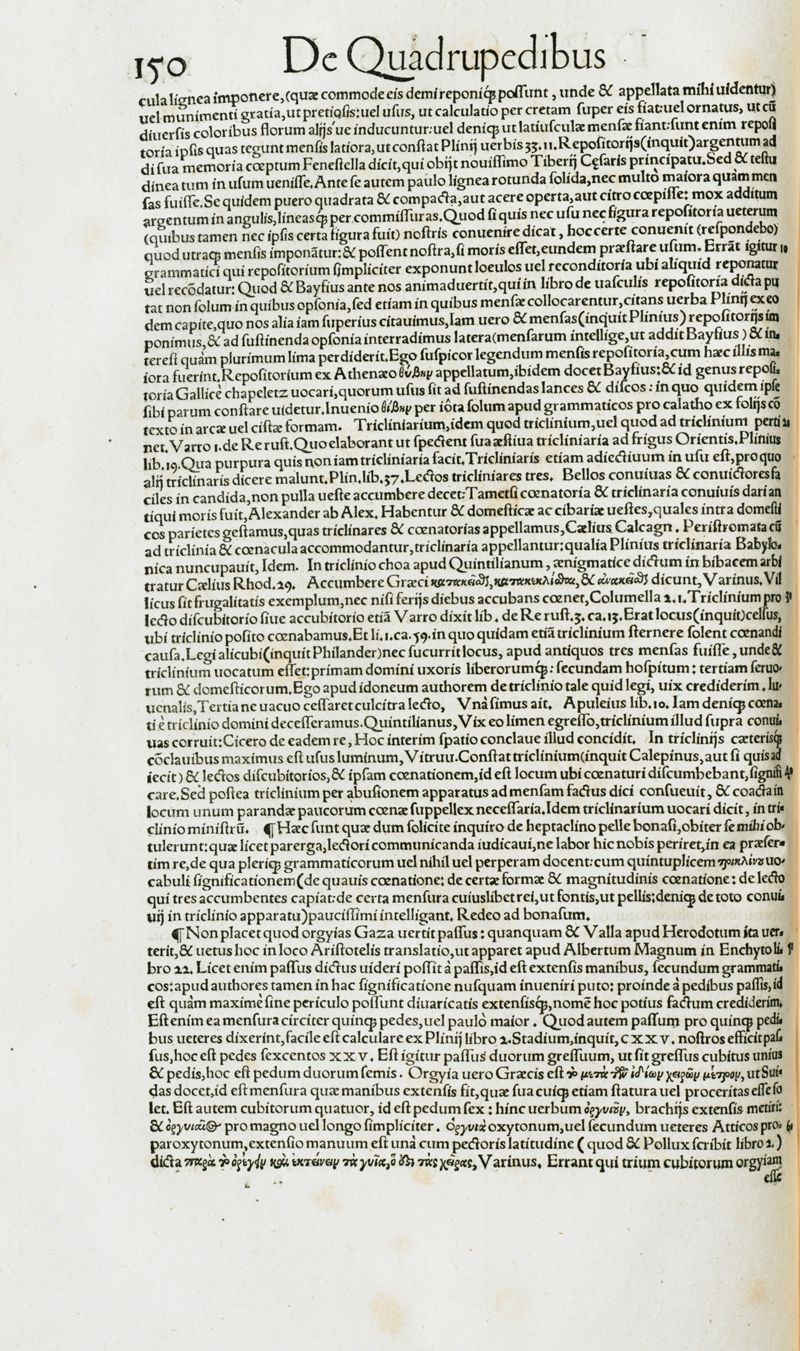 150 De Quadrupedibus
cula lignea imponere,(quæ commode eis demi reponiq́; possunt, unde & appellata mihi uidentur)
uel munimenti gratia,ut pretiosis:uel usus, ut calculatio per cretam super eis fiat:uel ornatus, ut cũ
diuersis coloribus florum alijs'ue inducuntur:uel deniq; ut latiusculæ mensæ fiant:sunt enim reposi
toria ipsis quas tegunt mensis latiora,ut constat Plinij uerbis 33.11.Repositorijs(inquit)argentum ad
di sua memoria cœptum Fenestella dicit,qui obijt nouissimo Tiberij Cęsaris principatu.Sed & testu
dinea tum in usum uenisse.Ante se autem paulo lignea rotunda solida,nec multo maiora quàm men
sas fuisse.Se quidem puero quadrata & compacta,aut acere operta,aut citro cœpisse: mox additum
argentum in angulis,lineasq́; per commissuras.Quod si quis nec usu nec figura repositoria ueterum
(quibus tamen nec ipsis certa figura fuit) nostris conuenire dicat, hoc certe conuenit (respondebo)
quod utraq; mensis imponãtur:& possent nostra,si moris esset,eundem præstare usum. Errãt igitur
grammatici qui repositorium simpliciter exponunt loculos uel reconditoria ubi aliquid reponatur
uel recõdatur: Quod & Bayfius ante nos animaduertit,qui in libro de uasculis repositoria dicta pu
tat non solum in quibus opsonia,sed etiam in quibus mensæ collocarentur,citans uerba Plinij ex eo
dem capite,quo nos alia iam superius citauimus,Iam uero & mensas(inquit Plinius) repositorijs im
ponimus,& ad sustinenda opsonia interradimus latera(mensarum intellige,ut addit Bayfius) & in-
terest quàm plurimum lima perdiderit.Ego suspicor legendum mensis repositoria,cum hæc illis ma-
iora fuerint.Repositorium ex Athenæo θίβην appellatum,ibidem docet Bayfius:& id genus reposi-
toria Gallicè chapeletz uocari,quorum usus sit ad sustinendas lances & discos: in quo quidem ipse
sibi parum constare uidetur.Inuenio θίβην per iôta solum apud grammaticos pro calatho ex folijs cõ
texto in arcæ uel cistæ formam. Tricliniarium,idem quod triclinium,uel quod ad triclinium perti
net.Varro 1.de Re rust.Quo elaborant ut spectent sua æstiua tricliniaria ad frigus Orientis.Plinius
lib.19.Qua purpura quis non iam tricliniaria facit.Tricliniaris etiam adiectiuum in usu est,pro quo
alij triclinaris dicere malunt.Plin.lib.37.Lectos tricliniares tres. Bellos conuiuas & conuictores fa
ciles in candida,non pulla ueste accumbere decet:Tametsi cœnatoria & triclinaria conuiuis dari an
tiqui moris fuit,Alexander ab Alex. Habentur & domesticæ ac cibariæ uestes,quales intra domesti
cos parietes gestamus,quas triclinares & cœnatorias appellamus,Cælius Calcagn. Peristromata cũ
ad triclinia & cœnacula accommodantur,triclinaria appellantur:qualia Plinius triclinaria Babylo-
nica nuncupauit, Idem. In triclinio choa apud Quintilianum, ænigmatice dictum in bibacem arbi
tratur Cælius Rhod.29. Accumbere Græci dicunt,Varinus.Vil
licus sit frugalitatis exemplum,nec nisi ferijs diebus accubans cœnet,Columella 2.1.Triclinium pro
lecto discubitorio siue accubitorio etiã Varro dixit lib. de Re rust.3. ca.13.Erat locus(inquit)celsus,
ubi triclinio posito cœnabamus.Et li.1.ca.59.in quo quidam etiã triclinium sternere solent cœnandi
causa.Legi alicubi(inquit Philander)nec sucurrit locus, apud antiquos tres mensas fuisse, unde &
triclinium uocatum esset:primam domini uxoris liberorumq́;: secundam hospitum: tertiam seruo-
rum & domesticorum.Ego apud idoneum authorem de triclinio tale quid legi, uix crediderim. Iu-
uenalis,Tertia ne uacuo cessaret culcitra lecto, Vnà simus ait. Apuleius lib.10. Iam deniq; cœna-
ti è triclinio domini decesseramus.Quintilianus,Vix eo limen egresso,triclinium illud supra conui-
uas corruit:Cicero de eadem re, Hoc interim spatio conclaue illud concidit. In triclinijs cæterisq́;
cõclauibus maximus est usus luminum,Vitruu.Constat triclinium(inquit Calepinus,aut si quis ad
iecit) & lectos discubitorios,& ipsam cœnationem,id est locum ubi cœnaturi discumbebant,signifi
care.Sed postea triclinium per abusionem apparatus ad mensam factus dici consueuit, & coacta in
locum unum parandæ paucorum cœnæ suppellex necessaria.Idem triclinarium uocari dicit, in tri-
clinio ministrũ. ¶ Hæc sunt quæ dum solicite inquiro de heptaclino pelle bonasi,obiter se mihi ob-
tulerunt:quæ licet parerga,lectori communicanda iudicaui,ne labor hic nobis periret,in ea præser-
tim re,de qua pleriq; grammaticorum uel nihil uel perperam docent:cum quintuplicem τρικλίνου uo-
cabuli significationem(de quauis cœnatione: de certæ formæ & magnitudinis cœnatione: de lecto
qui tres accumbentes capiat:de certa mensura cuiuslibet rei,ut fontis,ut pellis:deniq; de toto conui-
uij in triclinio apparatu)paucissimi intelligant. Redeo ad bonasum.
¶ Non placet quod orgyias Gaza uertit passus: quanquam & Valla apud Herodotum ita uer-
terit,& uetus hoc in loco Aristotelis translatio,ut apparet apud Albertum Magnum in Enchyto li-
bro 22. Licet enim passus dictus uideri possit à passis,id est extensis manibus, secundum grammati-
cos:apud authores tamen in hac significatione nusquam inueniri puto: proinde à pedibus passis, id
est quàm maximè sine periculo possunt diuaricatis extensisq́;,nomẽ hoc potius factum crediderim.
Est enim ea mensura circiter quinq; pedes,uel paulò maior. Quod autem passum pro quinq; pedi-
bus ueteres dixerint,facile est calculare ex Plinij libro 2.Stadium,inquit,CXXV. nostros efficit pas-
sus,hoc est pedes sexcentos XXV. Est igitur passus duorum gressuum, ut sit gressus cubitus unius
& pedis,hoc est pedum duorum semis. Orgyia uero Græcis est τὸ μετὰ τῶν ἰδίων χειρῶν μέτρον, ut Sui-
das docet,id est mensura quæ manibus extensis fit,quæ sua cuiq; etiam statura uel proceritas esse so
let. Est autem cubitorum quatuor, id est pedum sex: hinc uerbum ὀργυιᾶν, brachijs extensis metiri:
& ὀργυιαῖος pro magno uel longo simpliciter. Ὀργυιὰ oxytonum,uel secundum ueteres Atticos pro-
paroxytonum,extensio manuum est unà cum pectoris latitudine (quod & Pollux scribit libro 2.)
dicta παρὰ τὸ ὀρέγειν καὶ ἐκτείνειν τὰ γυῖα,ὅ ἐστι τὰς χεῖρας,Varinus. Errant qui trium cubitorum orgyiam
esse